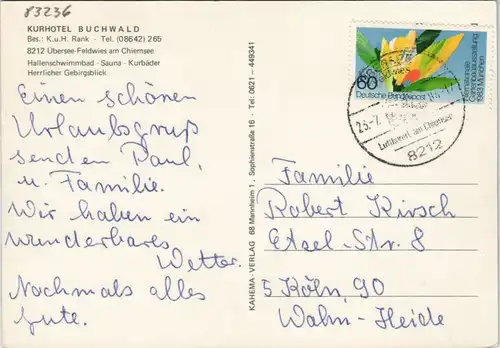 83236
KURHOTEL BUCHWALD
Bes.: K.u.H. Rank · Tel. (08642) 265
8212 Übersee-Feldwies am Chiemsee
Hallenschwimmbad · Sauna · Kurbäder
Herrlicher Gebirgsblick
Einen schönen
Urlaubsgruß
senden Paul,
u. Familie.
Wir haben ein
wunderbares
Wetter.
Nochmals alles
Gute.
KAHEMA-VERLAG 68 Mannheim 1, Sophienstraße 16 · Tel.: 0621 - 449341
60
Deutsche Bundespost
Internationale
Gartenbauausstellung
1983 München
Luftkurort am Chiemsee
8212
Familie
Robert Kirsch
Etzel-Str. 8
5 Köln, 90
Wahn-Heide